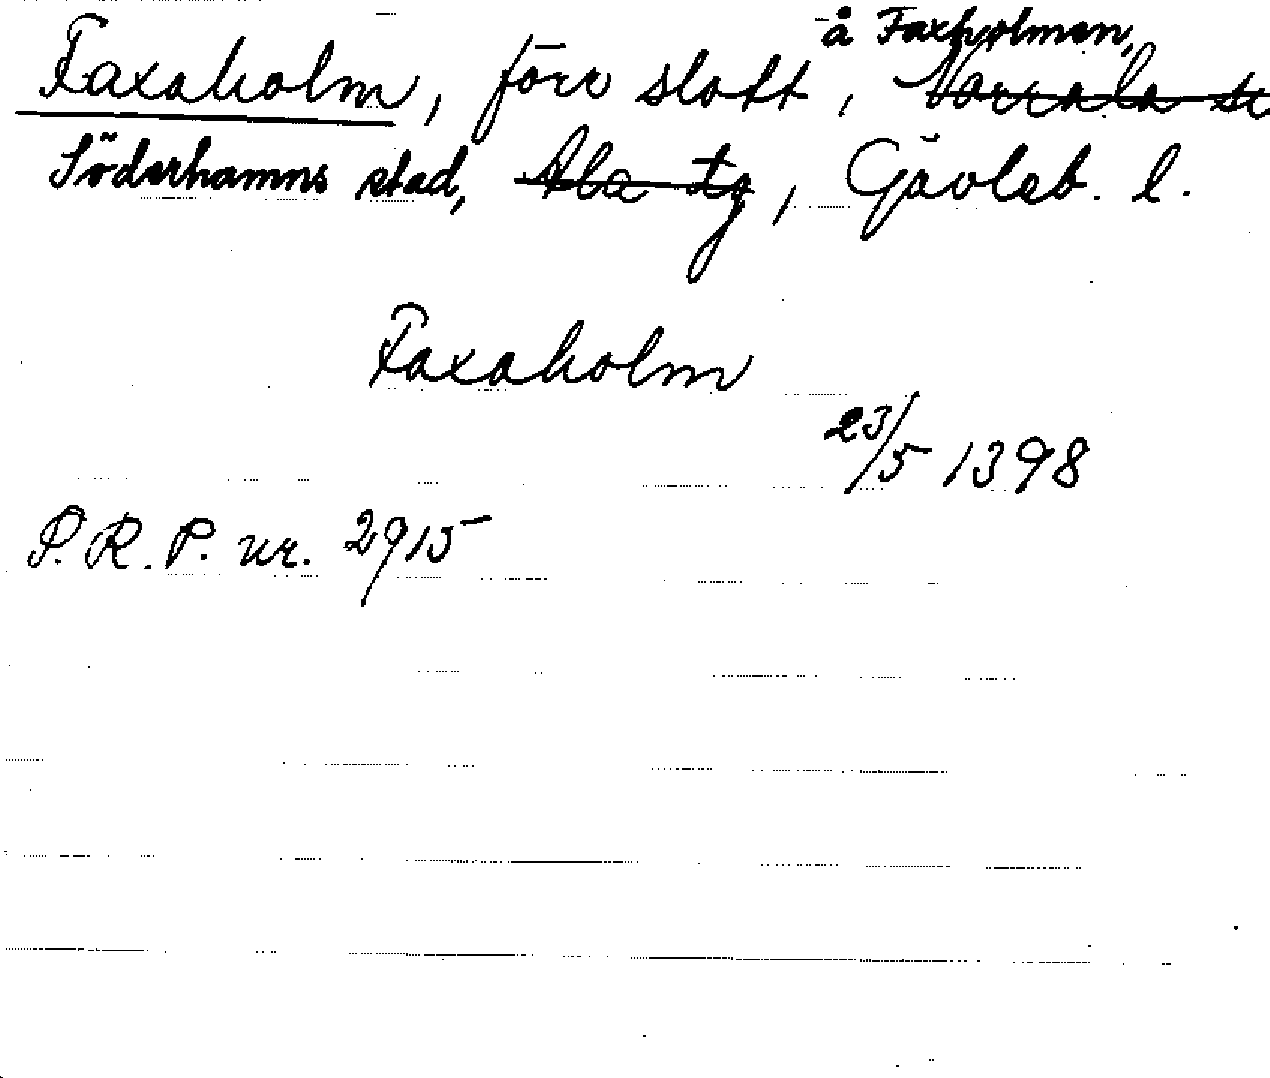 å Faxholmen,
Faxaholm, förr slott, Norrala sn
Söderhamns stad, Ala tg, Gävleb. l.
Faxaholm
23/5 1398
S.R.P. nr. 2915